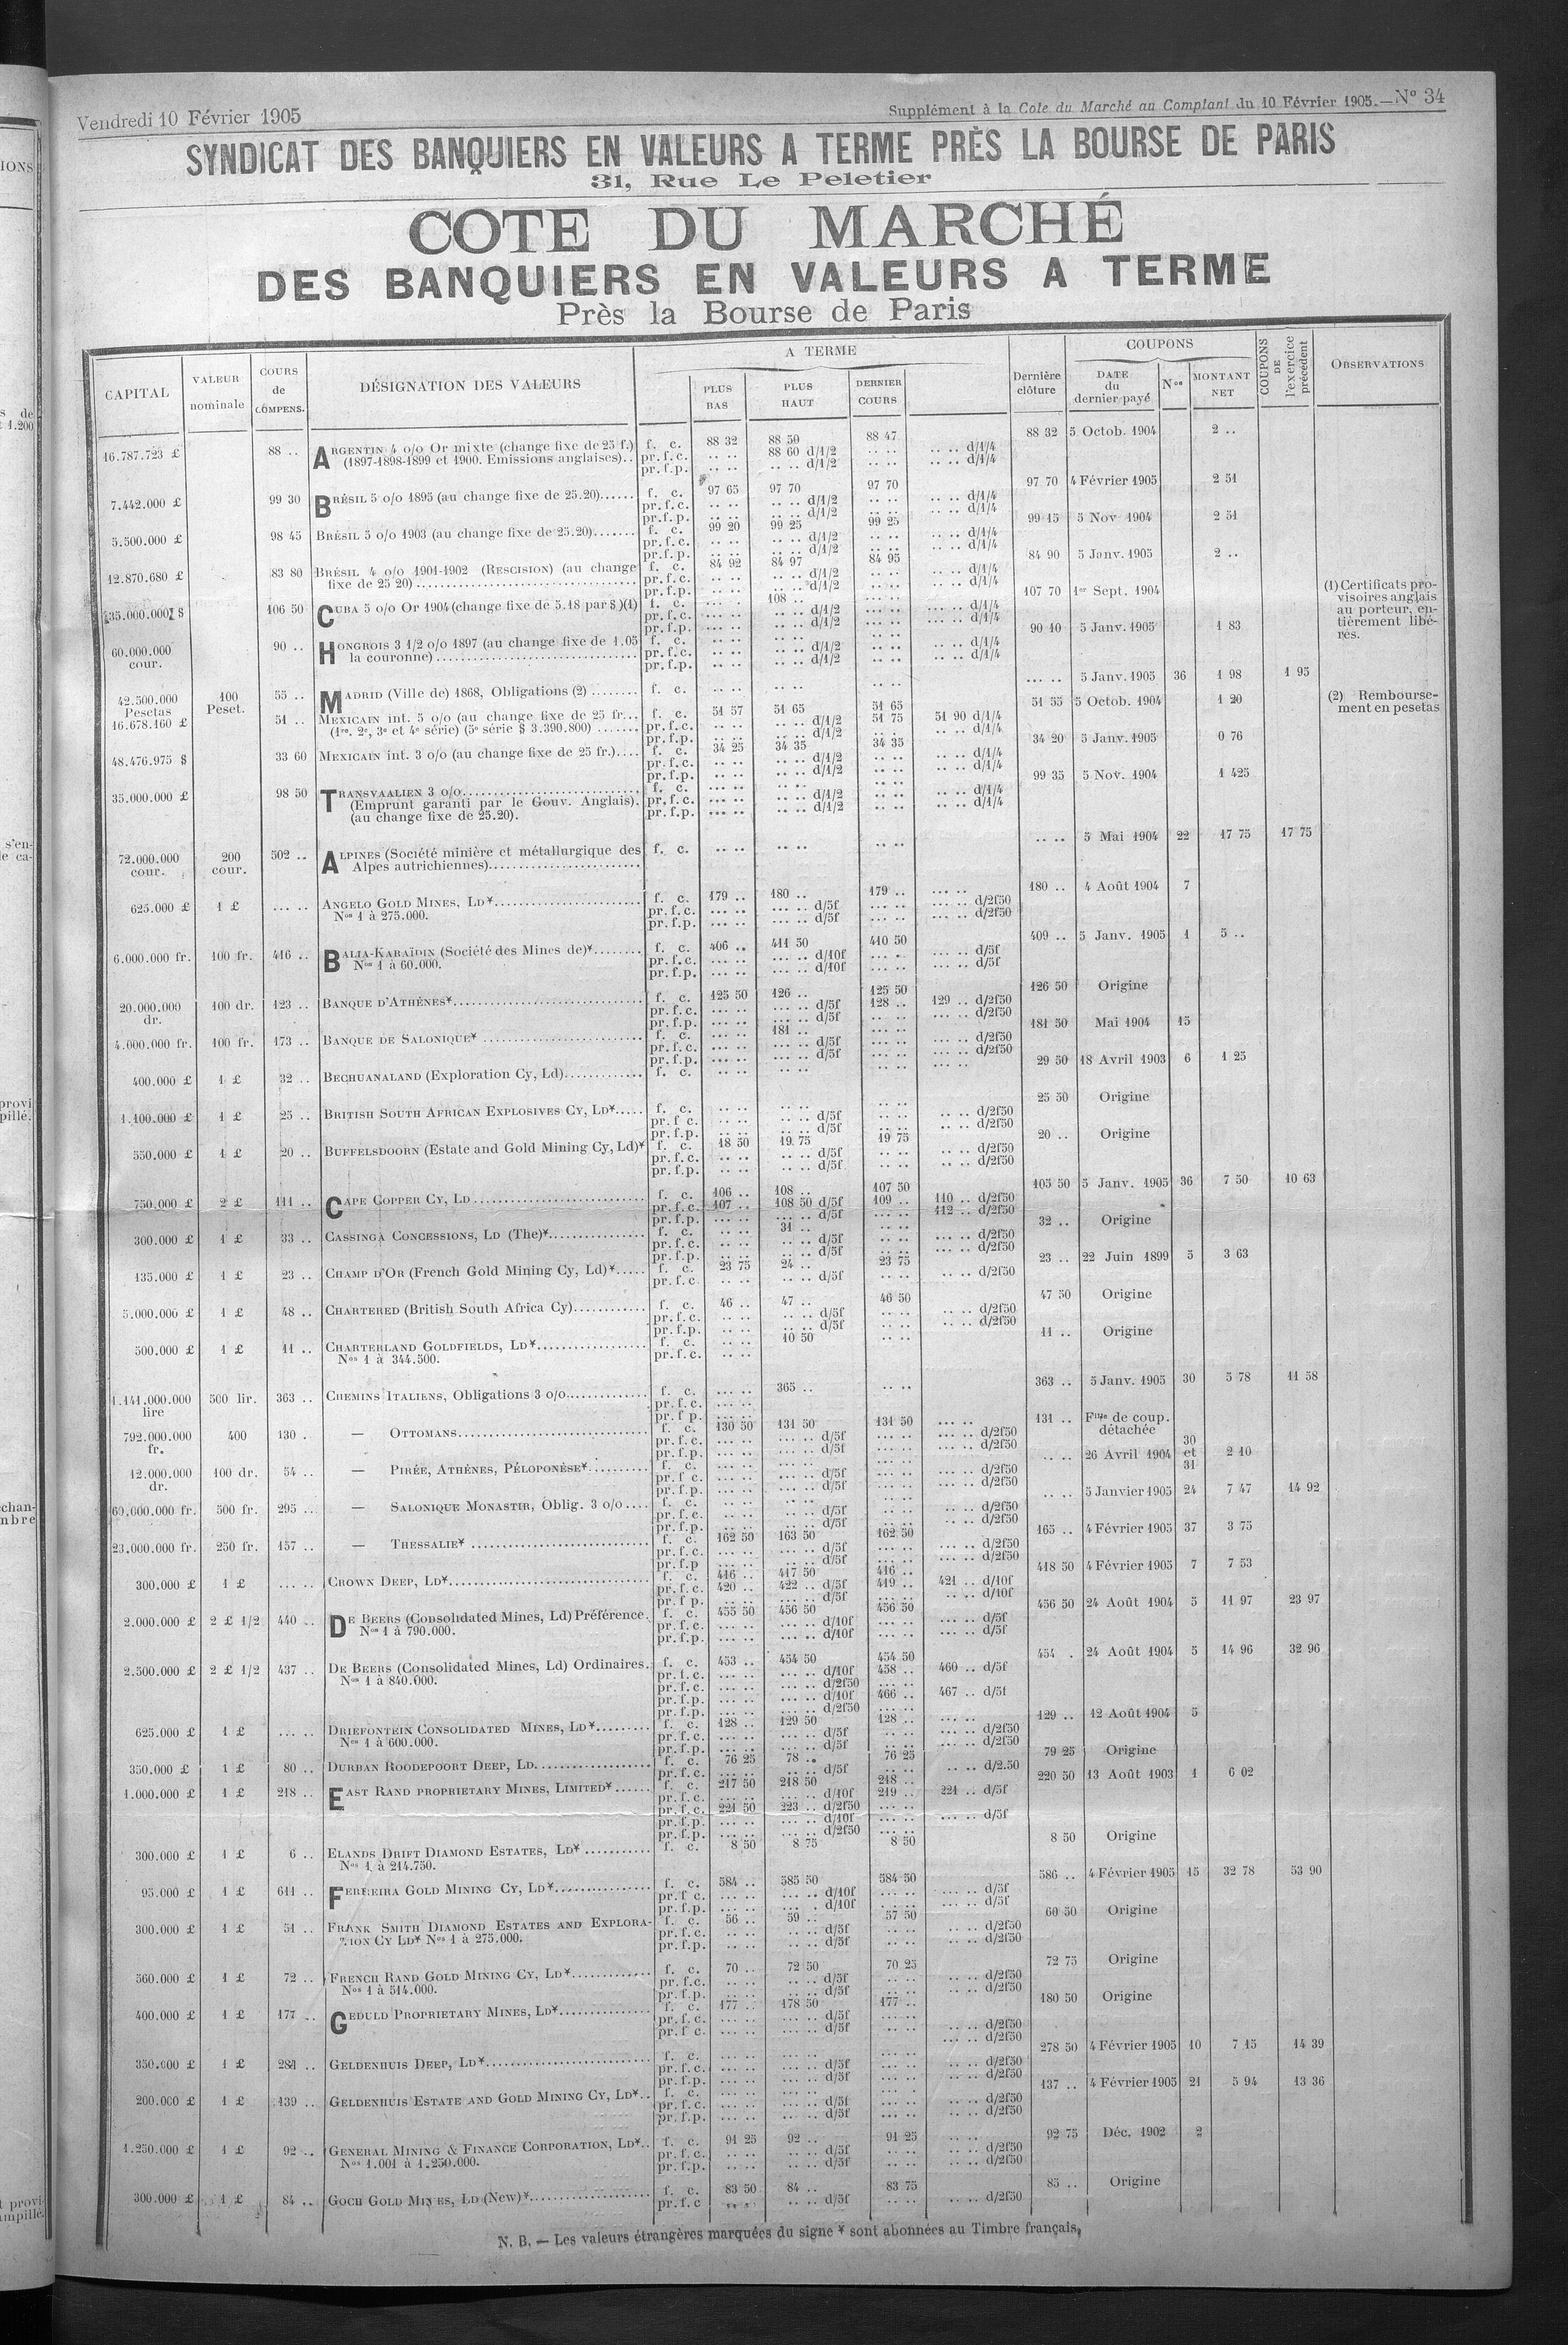 Vendredi 10 Février 1905
Supplément à la Cote du Marché au Comptant du 10 Février 1905.—N° 34
SYNDICAT DES BANQUIERS EN VALEURS A TERME PRÈS LA BOURSE DE PARIS
31, Rue Le Peletier
COTE DU MARCHÉ
DES BANQUIERS EN VALEURS A TERME
Près la Bourse de Paris
CAPITAL | VALEUR nominale | COURS de COMPENS. | DÉSIGNATION DES VALEURS | A TERME | PLUS BAS | PLUS HAUT | DERNIER COURS | Dernière clôture | COUPONS | DATE du dernier payé | Nos | MONTANT NET | COUPONS DE l'exercice précédent | OBSERVATIONS
16.787.723 £ 88 .. ARGENTIN 4 o/o Or mixte (change fixe de 25 f.) f. c. 88 32 88 50 88 47 88 32 5 Octob. 1904 2 ..
(1897-1898-1899 et 1900. Emissions anglaises).. pr.f.c. .. .. 88 60 d/1/2 .. .. .. .. d/1/4
pr.f.p. .. .. .. .. d/1/2 .. .. .. .. d/1/4
7.442.000 £ 99 30 BRÉSIL 5 o/o 1895 (au change fixe de 25.20)...... f. c. 97 65 97 70 97 70 97 70 4 Février 1905 2 51
pr.f.c. .. .. .. .. d/1/2 .. .. .. .. d/1/4
pr.f.p. .. .. .. .. d/1/2 .. .. .. .. d/1/4
5.500.000 £ 98 45 BRÉSIL 5 o/o 1903 (au change fixe de 25.20)....... f. c. 99 20 99 25 99 25 99 15 5 Nov 1904 2 51
pr.f.c. .. .. .. .. d/1/2 .. .. .. .. d/1/4
pr.f.p. .. .. .. .. d/1/2 .. .. .. .. d/1/4
12.870.680 £ 83 80 BRÉSIL 4 o/o 1901-1902 (RESCISION) (au change f. c. 84 92 84 97 84 95 84 90 5 Janv. 1905 2 ..
fixe de 25 20) pr.f.c. .. .. .. .. d/1/2 .. .. .. .. d/1/4
pr.f.p. .. .. .. .. d/1/2 .. .. .. .. d/1/4
35.000.000 $ 106 50 CUBA 5 o/o Or 1904 (change fixe de 5.18 par $)(1) f. c. 108 .. 107 70 1er Sept. 1904
pr.f.c. .. .. .. .. d/1/2 .. .. .. .. d/1/4
pr.f.p. .. .. .. .. d/1/2 .. .. .. .. d/1/4
(1) Certificats provisoires anglais au porteur, entièrement libérés.
60.000.000 cour. 90 .. HONGROIS 3 1/2 o/o 1897 (au change fixe de 1.05 f. c. 90 10 5 Janv. 1905 1 83
la couronne) pr.f.c. .. .. .. .. d/1/2 .. .. .. .. d/1/4
pr.f.p. .. .. .. .. d/1/2 .. .. .. .. d/1/4
42.500.000 Pesetas 100 Peset. 55 .. MADRID (Ville de) 1868, Obligations (2) ........ f. c. .. .. .. .. .. .. ... .. 5 Janv. 1905 36 1 98 1 95
(2) Remboursement en pesetas
16.678.160 £ 51 .. MEXICAIN int. 5 o/o (au change fixe de 25 fr... f. c. 51 57 51 65 51 65 51 55 5 Octob. 1904 1 20
(1re, 2e, 3e et 4e série) (5e série $ 3.390.800) ....... pr.f.c. .. .. .. .. d/1/2 51 75 51 90 d/1/4
pr.f.p. .. .. .. .. d/1/2 .. .. .. .. d/1/4
48.476.975 $ 33 60 MEXICAIN int. 3 o/o (au change fixe de 25 fr.).... f. c. 34 25 34 35 34 35 34 20 5 Janv. 1905 0 76
pr.f.c. .. .. .. .. d/1/2 .. .. .. .. d/1/4
pr.f.p. .. .. .. .. d/1/2 .. .. .. .. d/1/4
35.000.000 £ 98 50 TRANSVAALIEN 3 o/o f. c. 99 35 5 Nov. 1904 1 425
(Emprunt garanti par le Gouv. Anglais). pr.f.c. ... .. .. .. d/1/2 .. .. .. .. d/1/4
(au change fixe de 25.20). pr.f.p. ... .. .. .. d/1/2 .. .. .. .. d/1/4
72.000.000 cour. 200 cour. 502 .. ALPINES (Société minière et métallurgique des f. c. ... .. 5 Mai 1904 22 17 75 17 75
Alpes autrichiennes)
625.000 £ 1 £ ... .. ANGELO GOLD MINES, LD¥ f. c. 179 .. 180 .. 179 .. 180 .. 4 Août 1904 7
Nos 1 à 275.000. pr.f.c. ... .. d/5f ... .. ... .. d/2f50
pr.f.p. ... .. d/5f ... .. ... .. d/2f50
6.000.000 fr. 100 fr. 416 .. BALIA-KARAÏDIN (Société des Mines de)¥ f. c. 406 .. 411 50 410 50 409 .. 5 Janv. 1905 1 5 ..
Nos 1 à 60.000. pr.f.c. ... .. d/10f ... .. ... .. d/5f
pr.f.p. ... .. d/10f ... .. ... .. d/5f
20.000.000 dr. 100 dr. 123 .. BANQUE D'ATHÈNES¥ f. c. 125 50 126 .. 125 50 126 50 Origine
pr.f.c. ... .. d/5f 128 .. 129 .. d/2f50
pr.f.p. ... .. d/5f ... .. ... .. d/2f50
4.000.000 fr. 100 fr. 173 .. BANQUE DE SALONIQUE¥ f. c. 181 .. 181 50 Mai 1904 15
pr.f.c. ... .. d/5f ... .. ... .. d/2f50
pr.f.p. ... .. d/5f ... .. ... .. d/2f50
400.000 £ 1 £ 32 .. BECHUANALAND (Exploration Cy, Ld) f. c. .. .. .. .. .. .. 29 50 18 Avril 1903 6 1 25
1.100.000 £ 1 £ 25 .. BRITISH SOUTH AFRICAN EXPLOSIVES CY, LD¥..... f. c. 25 50 Origine
pr.f c. .. .. .. .. d/5f .. .. .. .. d/2f50
pr.f.p. .. .. .. .. d/5f .. .. .. .. d/2f50
550.000 £ 1 £ 20 .. BUFFELSDOORN (Estate and Gold Mining Cy, Ld)¥ f. c. 18 50 19 75 19 75 20 .. Origine
pr.f.c. .. .. .. .. d/5f .. .. .. .. d/2f50
pr.f.p. .. .. .. .. d/5f .. .. .. .. d/2f50
750.000 £ 2 £ 111 .. CAPE COPPER CY, LD f. c. 106 .. 108 .. 107 50 105 50 5 Janv. 1905 36 7 50 10 63
pr.f.c. 107 .. 108 50 d/5f 109 .. 110 .. d/2f50
pr.f.p. ... .. d/5f ... .. 112 .. d/2f50
300.000 £ 1 £ 33 .. CASSINGA CONCESSIONS, LD (The)¥ f. c. 31 .. 32 .. Origine
pr.f.c. .. .. .. .. d/5f .. .. .. .. d/2f50
pr.f.p. .. .. .. .. d/5f .. .. .. .. d/2f50
135.000 £ 1 £ 23 .. CHAMP D'OR (French Gold Mining Cy, Ld)¥..... f. c. 23 75 24 .. 23 75 23 .. 22 Juin 1899 5 3 63
pr.f.c .. .. .. .. d/5f .. .. .. .. d/2f50
5.000.000 £ 1 £ 48 .. CHARTERED (British South Africa Cy) f. c. 46 .. 47 .. 46 50 47 50 Origine
pr.f.c. .. .. .. .. d/5f .. .. .. .. d/2f50
pr.f.p. .. .. .. .. d/5f .. .. .. .. d/2f50
500.000 £ 1 £ 11 .. CHARTERLAND GOLDFIELDS, LD¥ f. c. 10 50 11 .. Origine
Nos 1 à 344.500. pr.f.c. .. ..
1.141.000.000 lire 500 lir. 363 .. CHEMINS ITALIENS, Obligations 3 o/o f. c. 365 .. 363 .. 5 Janv. 1905 30 5 78 11 58
pr.f.c. ... ..
pr.f p. ... ..
792.000.000 fr. 400 130 . — OTTOMANS f. c. 130 50 131 50 131 50 131 .. Flle de coup. détachée
pr.f.c. ... .. d/5f ... .. ... .. d/2f50
pr.f.p. ... .. d/5f ... .. ... .. d/2f50
12.000.000 dr. 100 dr. 54 .. — PIRÉE, ATHÈNES, PÉLOPONÈSE¥ f. c. .. .. 26 Avril 1904 30 et 31 2 10
pr.f c. ... .. d/5f ... .. ... .. d/2f50
pr.f.p. ... .. d/5f ... .. ... .. d/2f50
60.000.000 fr. 500 fr. 295 .. — SALONIQUE MONASTIR, Oblig. 3 o/o .... f. c. .. .. 5 Janvier 1905 24 7 47 14 92
pr.f.c. .. .. .. .. d/5f .. .. .. .. d/2f50
pr.f.p. .. .. .. .. d/5f .. .. .. .. d/2f50
23.000.000 fr. 250 fr. 157 .. — THESSALIE¥ f. c. 162 50 163 50 162 50 165 .. 4 Février 1905 37 3 75
pr.f.c. ... .. d/5f ... .. ... .. d/2f50
pr.f.p ... .. d/5f ... .. ... .. d/2f50
300.000 £ 1 £ ... .. CROWN DEEP, LD¥ f. c. 416 .. 417 50 416 .. 418 50 4 Février 1905 7 7 53
pr.f.c. 420 .. 422 .. d/5f 419 .. 421 .. d/10f
pr.f p. ... .. d/5f ... .. .. .. d/10f
2.000.000 £ 2 £ 1/2 440 .. DE BEERS (Consolidated Mines, Ld) Préférence. f. c. 455 50 456 50 456 50 456 50 24 Août 1904 5 11 97 23 97
Nos 1 à 790.000. pr.f.c. ... .. d/10f ... .. ... .. d/5f
pr.f.p. ... .. d/10f ... .. ... .. d/5f
2.500.000 £ 2 £ 1/2 437 .. DE BEERS (Consolidated Mines, Ld) Ordinaires. f. c. 453 .. 454 50 454 50 454 . 24 Août 1904 5 14 96 32 96
Nos 1 à 840.000. pr.f.c. ... .. d/10f 458 .. 460 .. d/5f
pr.f.c. ... .. d/2f50 ... ..
pr.f.p. ... .. d/10f 466 .. 467 .. d/5f
pr.f.p. ... .. d/2f50 ... ..
625.000 £ 1 £ ... .. DRIEFONTEIN CONSOLIDATED MINES, LD¥ f. c. 128 .. 129 50 128 .. 129 .. 12 Août 1904 5
Nos 1 à 600.000. pr.f.c. ... .. d/5f .. .. ... .. d/2f50
pr.f.p. ... .. d/5f .. .. ... .. d/2f50
350.000 £ 1 £ 80 .. DURBAN ROODEPOORT DEEP, LD f. c. 76 25 78 .. 76 25 79 25 Origine
pr.f.c. ... .. d/5f .. .. .. .. d/2.50
1.000.000 £ 1 £ 218 .. EAST RAND PROPRIETARY MINES, LIMITED¥ f. c. 217 50 218 50 218 .. 220 50 13 Août 1903 1 6 02
pr.f.c. ... .. d/10f 219 .. 221 .. d/5f
pr.f.c. 221 50 223 .. d/2f50 ... ..
pr.f.p. ... .. d/10f ... .. ... .. d/5f
pr.f.p. ... .. d/2f50 ... ..
300.000 £ 1 £ 6 .. ELANDS DRIFT DIAMOND ESTATES, LD¥ f. c. 8 50 8 75 8 50 8 50 Origine
Nos 1 à 214.750.
95.000 £ 1 £ 611 .. FERREIRA GOLD MINING CY, LD¥ f. c. 584 .. 585 50 584 50 586 .. 4 Février 1905 15 32 78 53 90
pr.f c. ... .. d/10f ... .. ... .. d/5f
pr.f.p. ... .. d/10f ... .. ... .. d/5f
300.000 £ 1 £ 51 .. FRANK SMITH DIAMOND ESTATES AND EXPLORA- f. c. 56 .. 59 .. 57 50 60 50 Origine
TION CY LD¥ Nos 1 à 275.000. pr.f.c. .. .. .. .. d/5f .. .. .. .. d/2f50
pr.f.p. .. .. .. .. d/5f .. .. .. .. d/2f50
560.000 £ 1 £ 72 .. FRENCH RAND GOLD MINING CY, LD¥ f. c. 70 .. 72 50 70 25 72 75 Origine
Nos 1 à 514.000. pr.f.c. .. .. .. .. d/5f .. .. .. .. d/2f50
pr.f.p. .. .. .. .. d/5f .. .. .. .. d/2f50
400.000 £ 1 £ 177 .. GEDULD PROPRIETARY MINES, LD¥ f. c. 177 .. 178 50 177 .. 180 50 Origine
pr.f.c. ... .. d/5f .. .. .. .. d/2f50
pr.f c. ... .. d/5f ... .. d/2f50
350.000 £ 1 £ 281 .. GELDENHUIS DEEP, LD¥ f. c. 278 50 4 Février 1905 10 7 15 14 39
pr.f.c. ... .. d/5f ... .. .. .. d/2f50
pr.f.p. ... .. d/5f ... .. .. .. d/2f50
200.000 £ 1 £ 139 .. GELDENHUIS ESTATE AND GOLD MINING CY, LD¥.. f. c. 137 .. 4 Février 1905 21 5 94 13 36
pr.f.c. ... .. d/5f ... .. .. .. d/2f50
pr.f.p. ... .. d/5f ... .. .. .. d/2f50
1.250.000 £ 1 £ 92 .. GENERAL MINING & FINANCE CORPORATION, LD¥.. f. c. 91 25 92 .. 91 25 92 75 Déc. 1902 2
Nos 1.001 à 1.250.000. pr.f.c. .. .. .. .. d/5f .. .. .. .. d/2f50
pr.f.p. .. .. .. .. d/5f .. .. .. .. d/2f50
300.000 £ 1 £ 84 .. GOCH GOLD MINES, LD (New)¥ f. c. 83 50 84 .. 83 75 85 .. Origine
pr.f.c .. .. .. .. d/5f .. .. .. .. d/2f50
N. B. — Les valeurs étrangères marquées du signe ¥ sont abonnées au Timbre français.